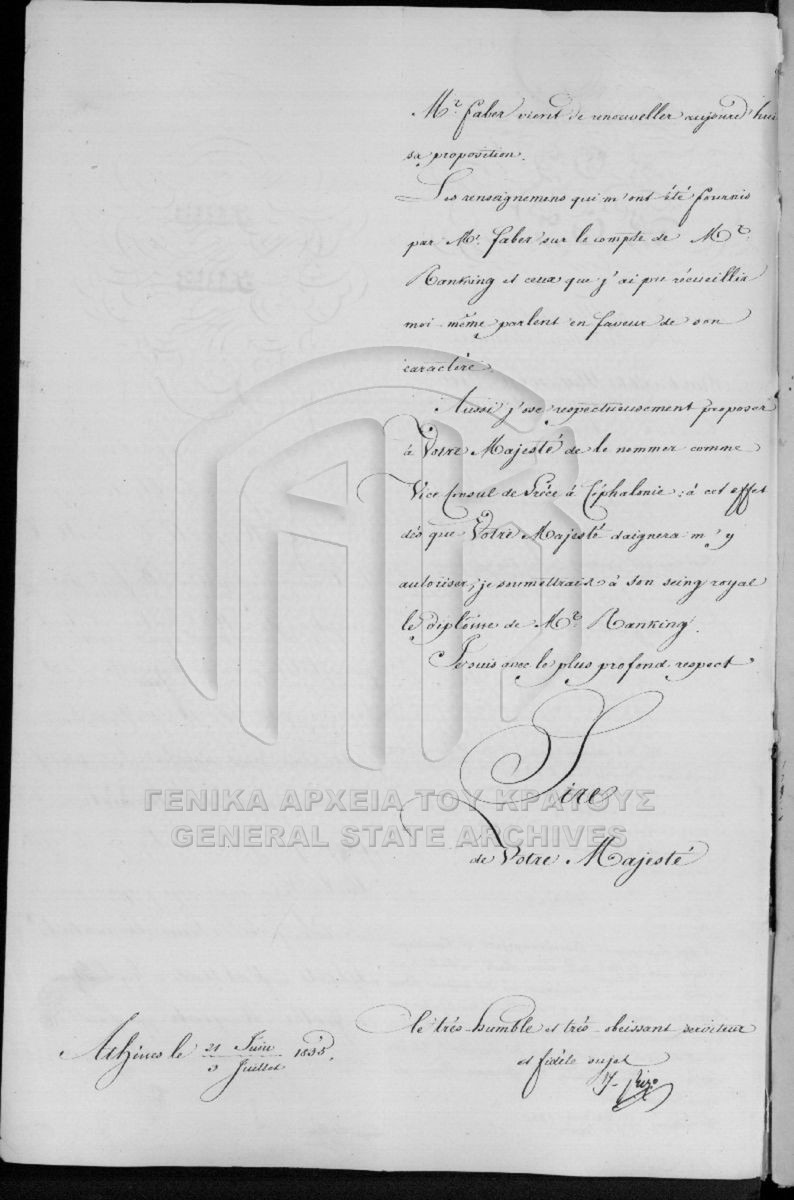 Mr. Faber vient de renouveller aujourd'hui
sa proposition.
Les renseignemens qui m'ont été fournis
par Mr. Faber sur le compte de Mr.
Ranking et ceux que j'ai pu récueillir
moi-même parlent en faveur de son
caractère.
Aussi j'ose respectueusement proposer
à Votre Majesté de le nommer comme
Vice Consul de Grèce à Céphalonie; à cet effet
dès que Votre Majesté daignera m'y
autoriser, je soumettrais à son seing royal
le diplôme de Mr. Ranking.
Je suis avec le plus profond respect
Sire
ΓΕΝΙΚΑ ΑΡΧΕΙΑ ΤΟΥ ΚΡΑΤΟΥΣ
GENERAL STATE ARCHIVES
de Votre Majesté
le très-humble et très-obéissant serviteur
et fidèle sujet
Athènes le 21 Juin / 3 Juillet
Rizo